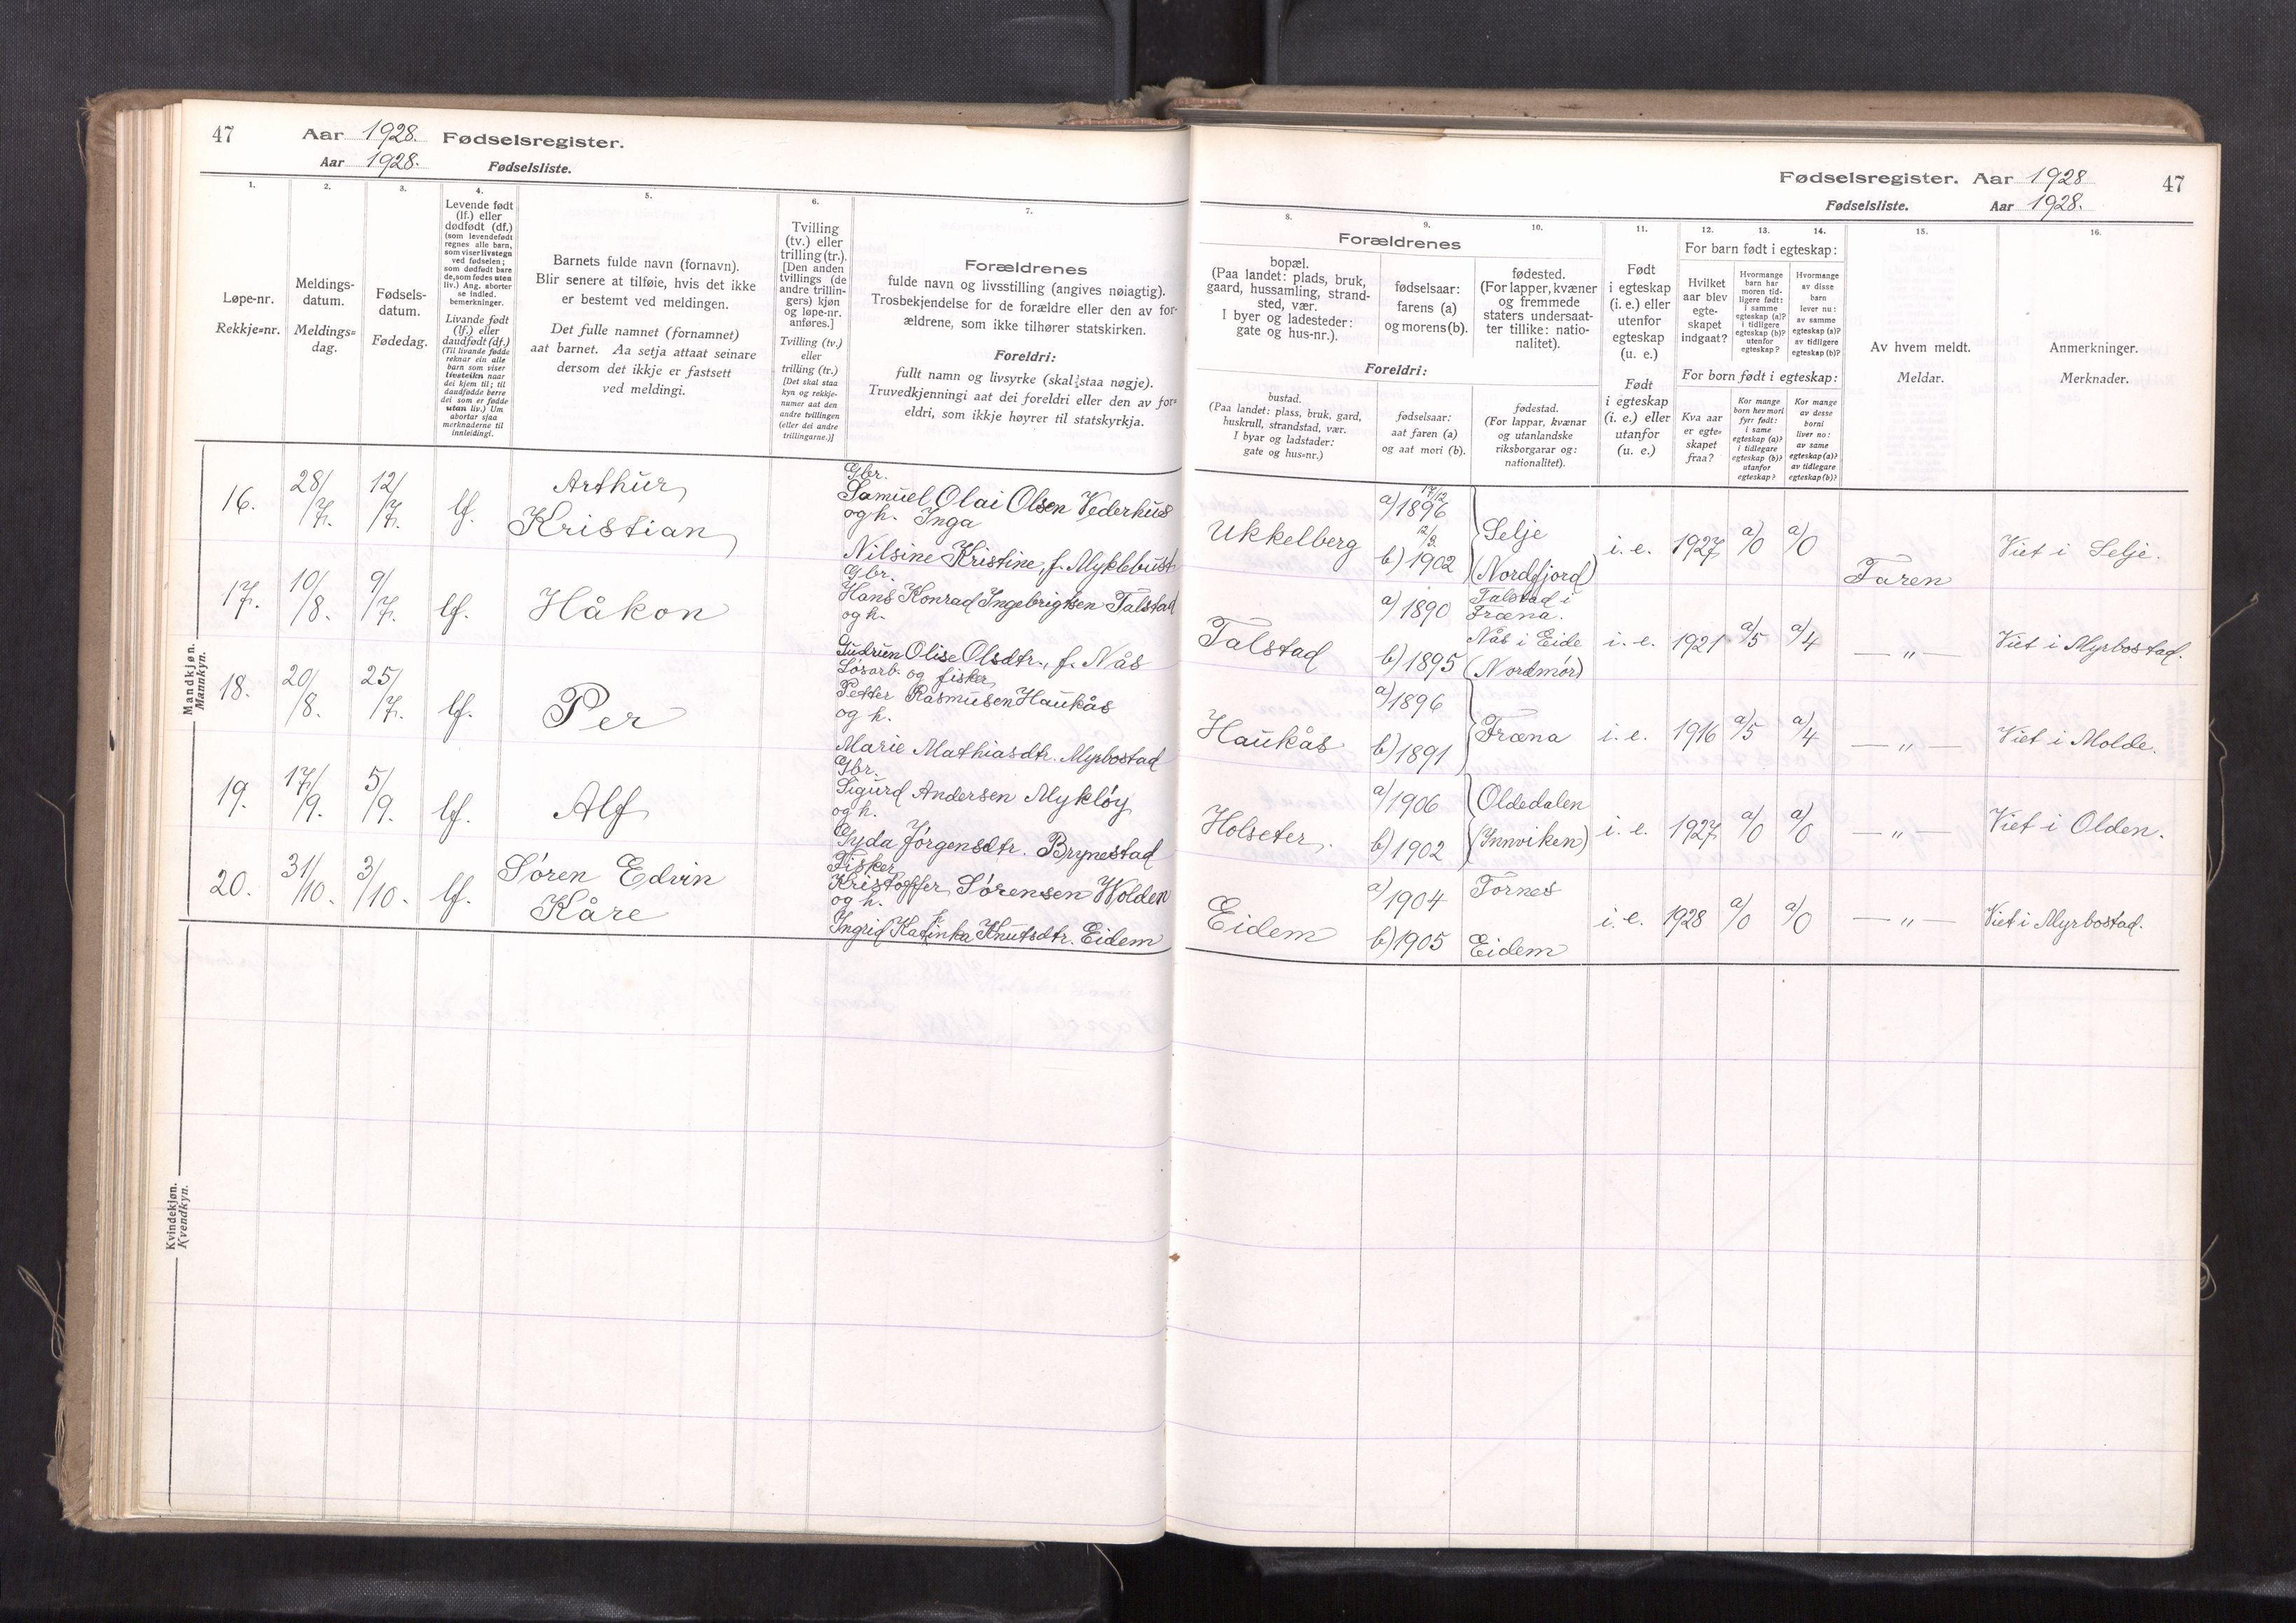 47
Aar 1928. Fødselsregister.
Aar 1928. Fødselsliste.
1.
Løpe-nr.
Rekkje-nr.
2.
Meldings-
datum.
Meldings-
dag.
3.
Fødsels-
datum.
Fødedag.
4.
Levende født
(lf.) eller
dødfødt (df.)
(som levendefødt
regnes alle barn,
som viser livstegn
ved fødselen;
som dødfødt bare
de, som fødes uten
liv.) Ang. aborter
se indled.
bemerkninger.
Livande født
(lf.) eller
daudfødt (df.)
(Til livande fødde
reknar ein alle
barn som viser
livsteikn naar
dei kjem til; til
daudfødde berre
dei som er fødde
utan liv.) Um
abortar sjaa
merknaderne til
innleidingi.
5.
Barnets fulde navn (fornavn).
Blir senere at tilføie, hvis det ikke
er bestemt ved meldingen.
Det fulle namnet (fornamnet)
aat barnet. Aa setja attaat seinare
dersom det ikkje er fastsett
ved meldingi.
6.
Tvilling
(tv.) eller
trilling (tr.).
[Den anden
tvillings (de
andre trillin-
gers) kjøn
og løpe-nr.
anføres.]
Tvilling (tv.)
eller
trilling (tr.)
[Det skal staa
kyn og rekkje-
numer aat den
andre tvillingen
(eller dei andre
trillingarne.)]
7.
Forældrenes
fulde navn og livsstilling (angives nøiagtig).
Trosbekjendelse for de forældre eller den av for-
ældrene, som ikke tilhører statskirken.
Foreldri:
fullt namn og livsyrke (skal staa nøgje).
Truvedkjenningi aat dei foreldri eller den av for-
eldri, som ikkje høyrer til statskyrkja.
Mandkjøn.
Mannkyn.
16.
28/7.
12/7.
lf.
Arthur
Kristian
Gbr.
Samuel Olai Olsen Vederhus
og h. Inga
Nilsine Kristine, f. Myklebust
17.
10/8.
9/7.
lf.
Håkon
Gbr.
Hans Konrad Ingebrigtsen Talstad
og h.
Gudrun Olise Olsdtr., f. Nås
18.
20/8.
25/7.
lf.
Per
Løsarb. og fisker
Petter Rasmusen Haukås
og h.
Marie Mathiasdtr. Myrbostad
19.
17/9.
5/9.
lf.
Alf
Gbr.
Sigurd Andersen Mykløy
og h.
Gyda Jørgensdtr. Brynestad
20.
31/10.
3/10.
lf.
Søren Edvin
Kåre
Fisker
Kristoffer Sørensen Wolden
og h.
Ingrid Katinka Knutsdtr. Eidem
Kvindekjøn.
Kvendkyn.
Fødselsregister. Aar 1928
47
Fødselsliste. Aar 1928.
8.
9.
10.
Forældrenes
bopæl.
(Paa landet: plads, bruk,
gaard, hussamling, strand-
sted, vær.
I byer og ladesteder:
gate og hus-nr.).
fødselsaar:
farens (a)
og morens (b).
fødested.
(For lapper, kvæner
og fremmede
staters undersaat-
ter tillike: natio-
nalitet).
Foreldri:
bustad.
(Paa landet: plass, bruk, gard,
huskrull, strandstad, vær.
I byar og ladstader:
gate og hus-nr.)
fødselsaar:
aat faren (a)
og aat mori (b).
fødestad.
(For lappar, kvænar
og utanlandske
riksborgarar og:
nationalitet).
11.
Født
i egteskap
(i. e.) eller
utenfor
egteskap
(u. e.)
Født
i egteskap
(i. e.) eller
utanfor
(u. e.)
12.
13.
14.
For barn født i egteskap:
Hvilket
aar blev
egte-
skapet
indgaat?
Hvormange
barn har
moren tid-
ligere født:
i samme
egteskap (a)?
i tidligere
egteskap (b)?
utenfor
egteskap?
Hvormange
av disse
barn
lever nu:
av samme
egteskap (a)?
av tidligere
egteskap (b)?
For born født i egteskap:
Kva aar
er egte-
skapet
fraa?
Kor mange
born hev mori
fyrr født:
i same
egteskap (a)?
i tidlegare
egteskap (b)?
utanfor
egteskap?
Kor mange
av desse
borni
liver no:
av same
egteskap (a)?
av tidlegare
egteskap (b)?
15.
Av hvem meldt.
Meldar.
16.
Anmerkninger.
Merknader.
Ukkelberg
17/12
a) 1896
12/9.
b) 1902
Selje
(Nordfjord)
i. e.
1927
a/0
a/0
Faren
Viet i Selje.
Talstad
a) 1890
b) 1895
Talstad i
Fræna.
Nås i Eide
(Nordmør)
i. e.
1921
a/5
a/4
— „ —
Viet i Myrbostad.
Haukås
a) 1896
b) 1891
Fræna
i. e.
1916
a/5
a/4
— „ —
Viet i Molde.
Holseter.
a) 1906
b) 1902
Oldedalen
(Innviken)
i. e.
1927
a/0
a/0
— „ —
Viet i Olden.
Eidem
a) 1904
b) 1905
Tornes
Eidem
i. e.
1928
a/0
a/0
— „ —
Viet i Myrbostad.